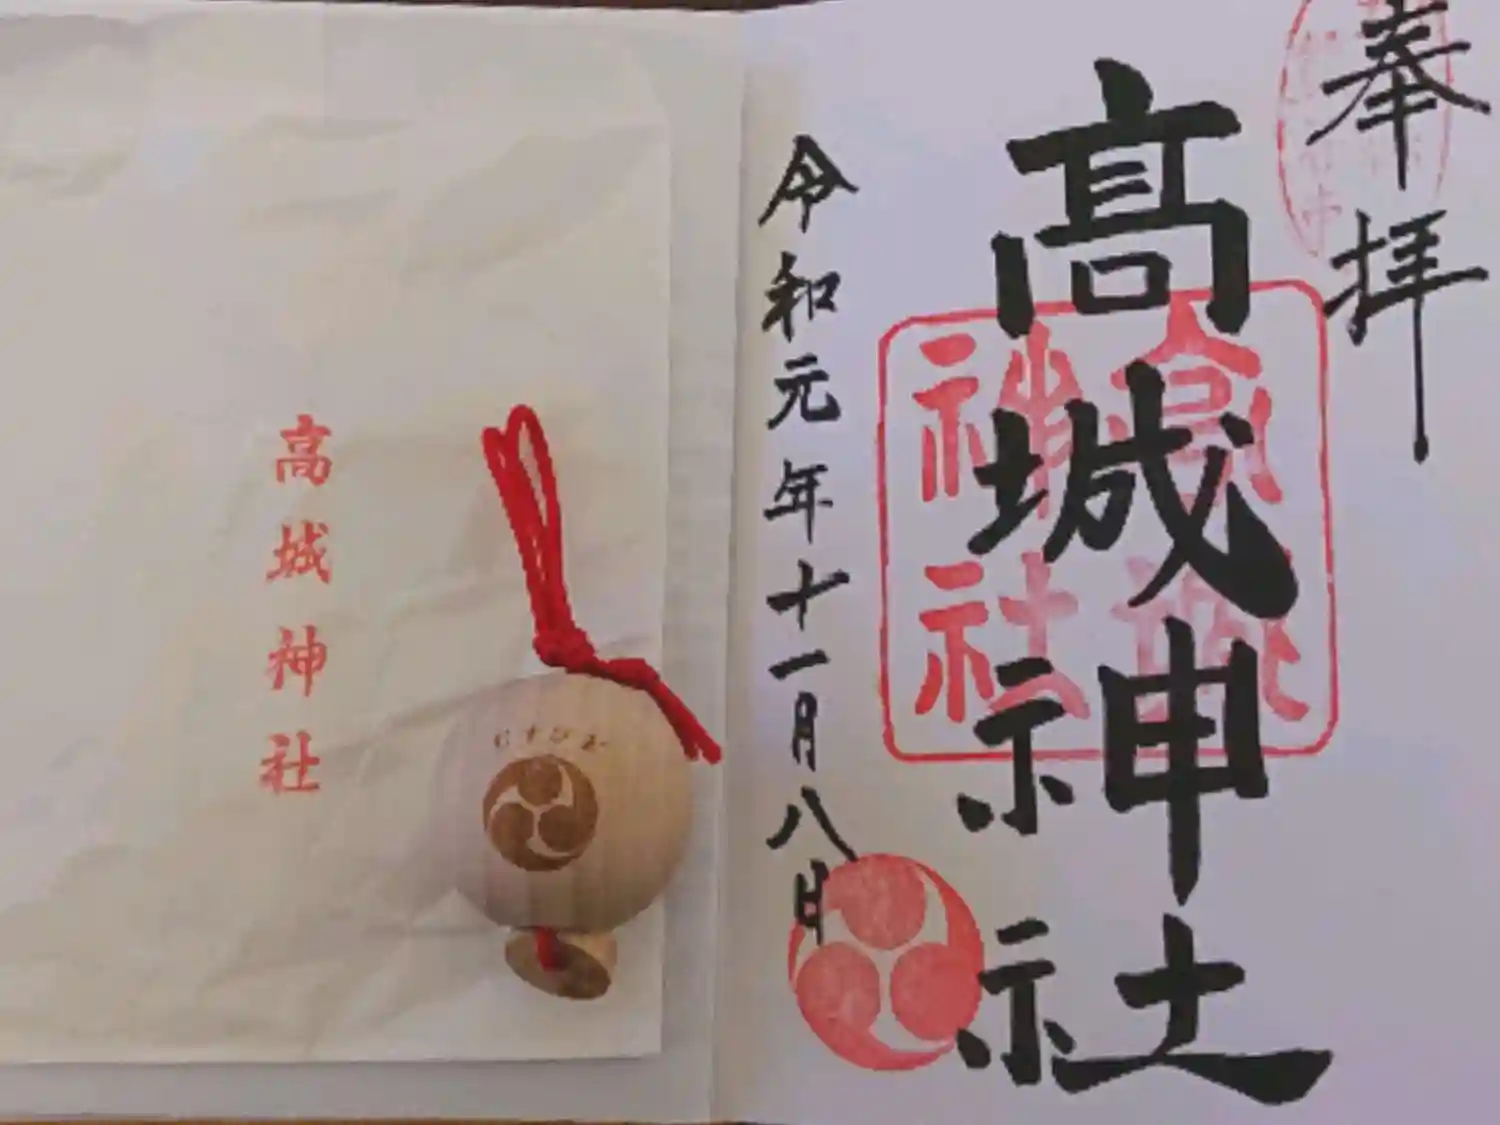 奉拝
髙城神社
高城神社
令和元年十一月八日
高城神社
むすひ